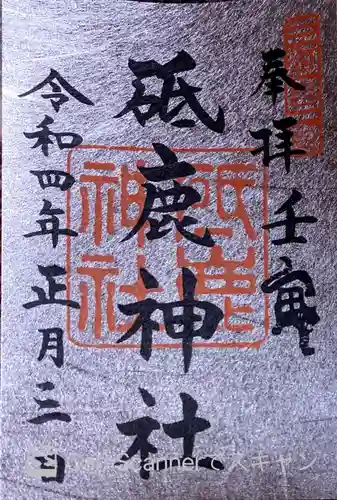 奉拝
壬寅
砥鹿神社
令和四年正月三日
砥鹿神社
Scannerでスキャン